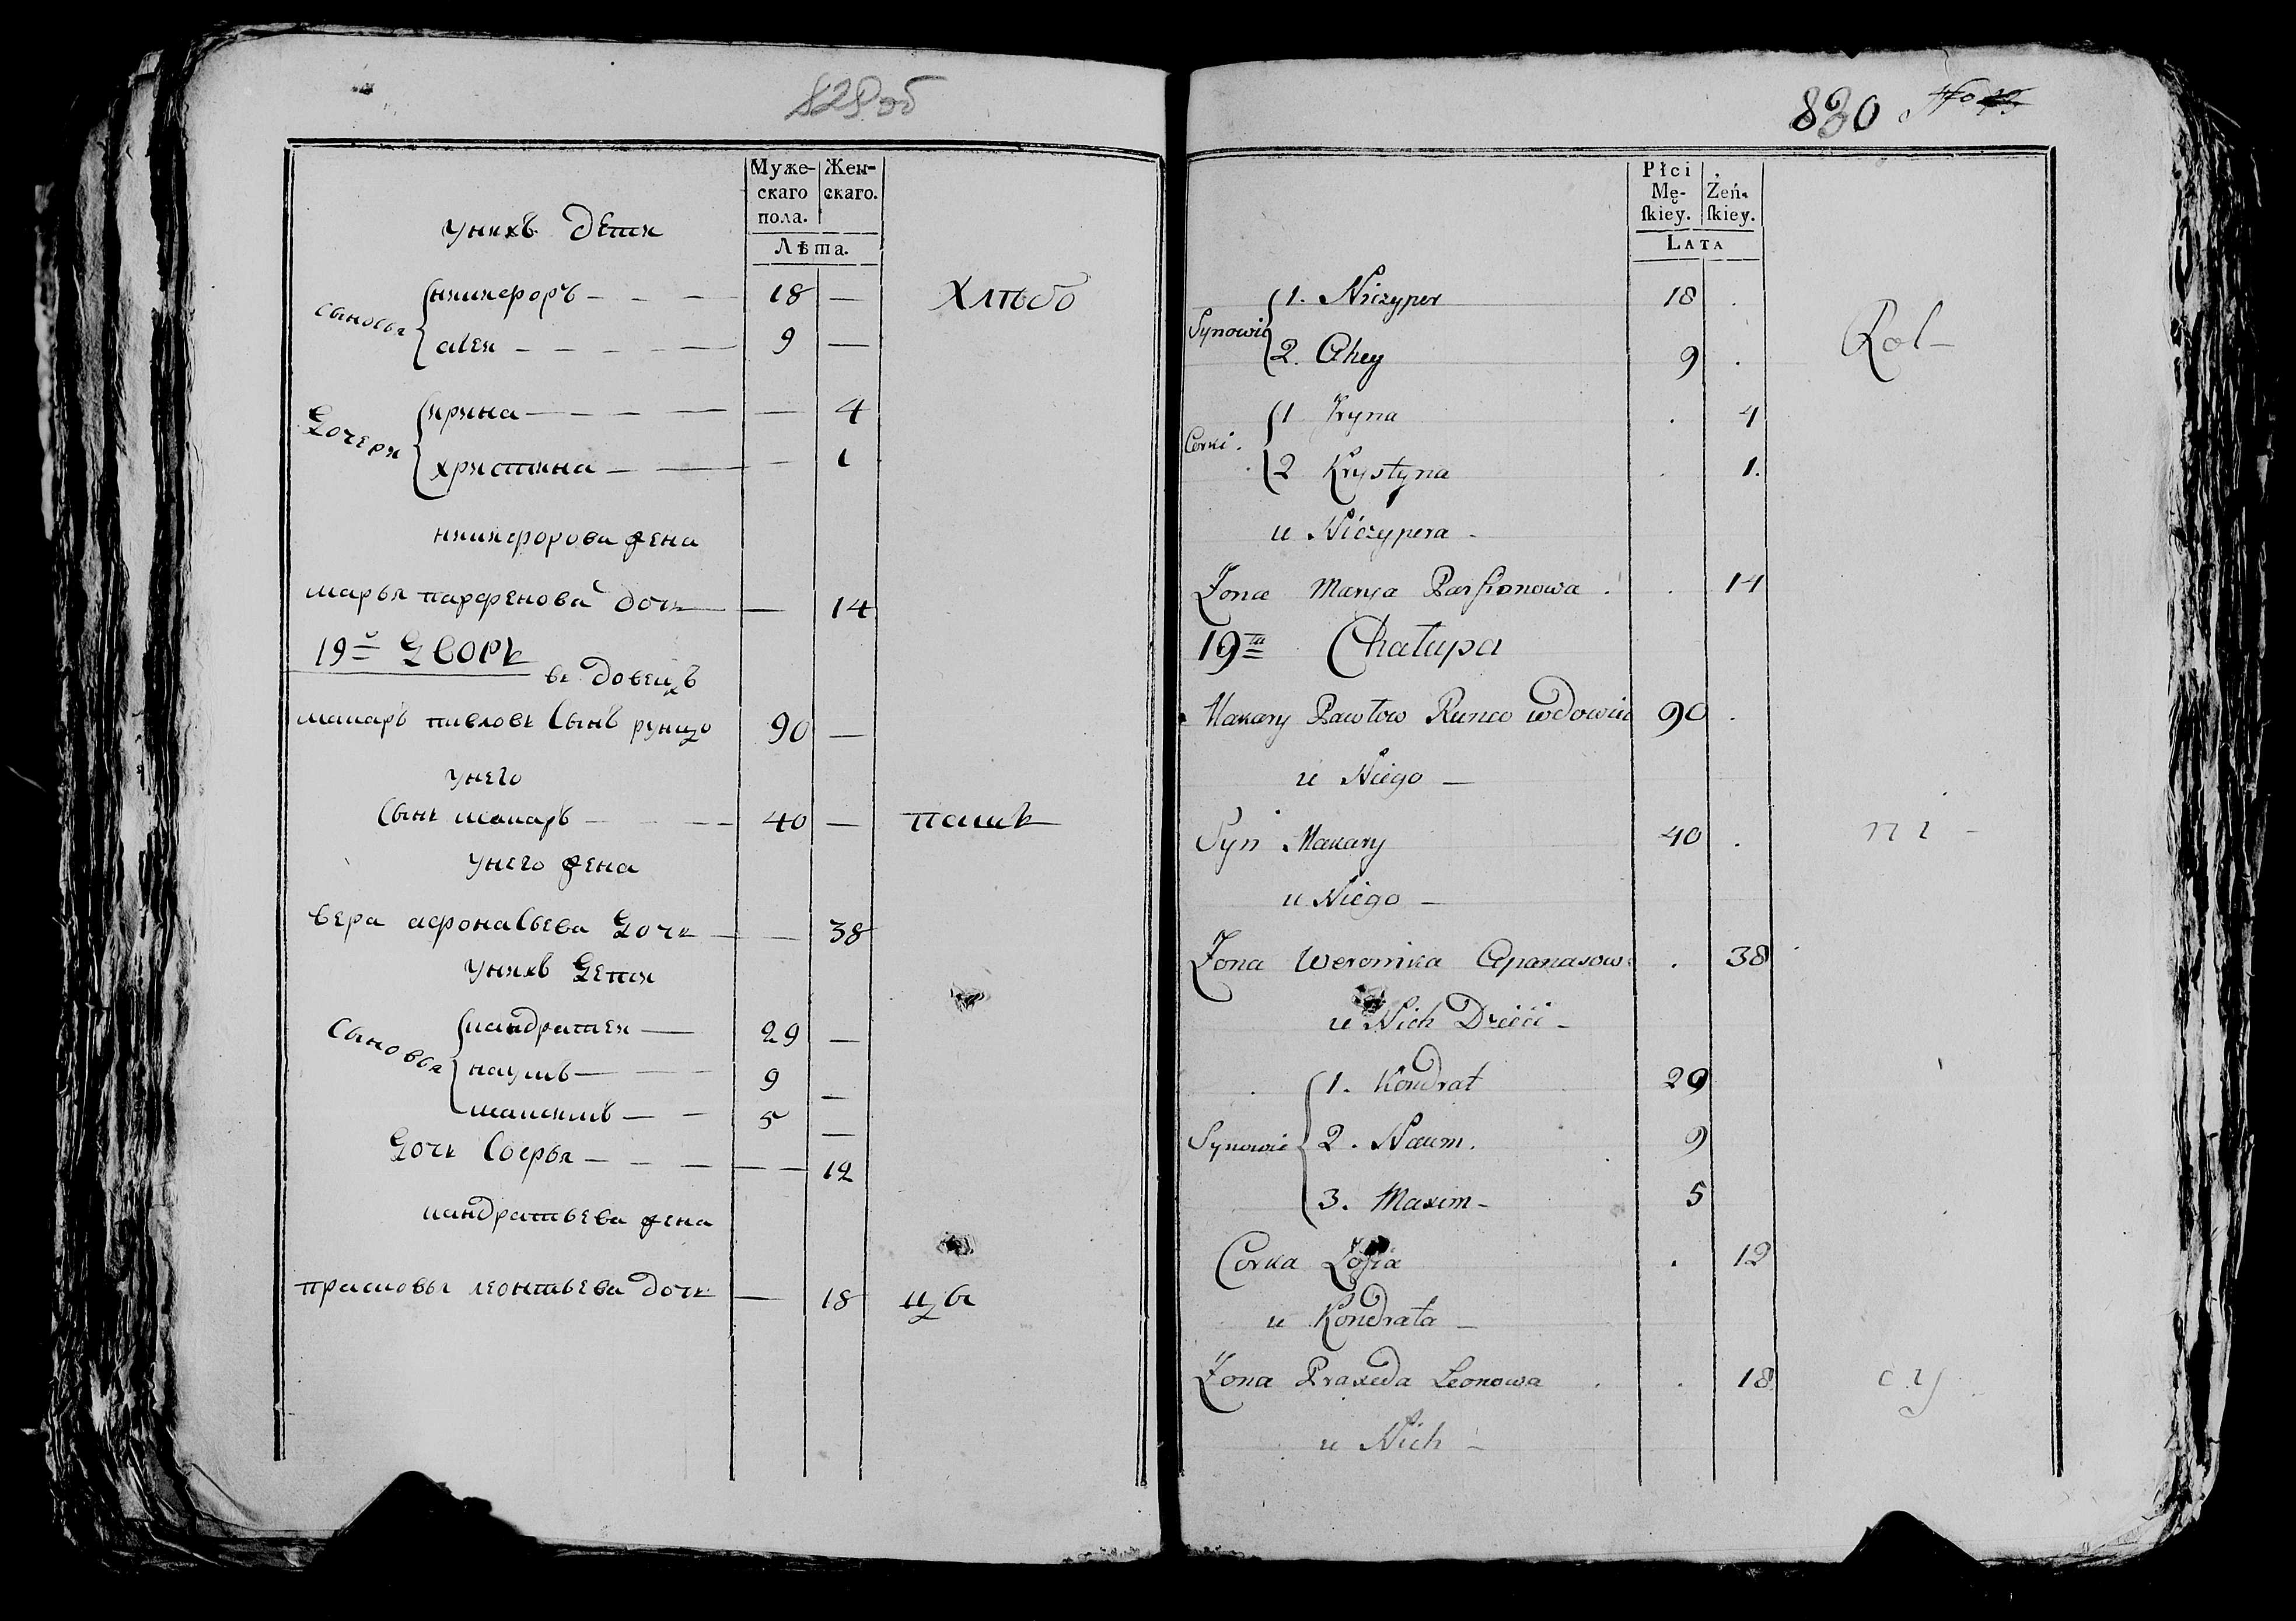 829 об
Муже-
скаго
пола.
Жен-
скаго.
Лѣта.
у нихъ дети
Сыновья
никифоръ 18 —
алеи 9 —
Хлѣбо
Дочери
ирина — 4
христина — 1
никифорова жена
марья парфенова дочь — 14
19й дворъ
вдовецъ
макаръ павловъ Сынъ рунцо 90 —
у него
Сынъ макаръ 40 —
пашъ
у него жена
вера афонасьева дочь — 38
у нихъ дети
Сыновья
кандратеи 29 —
наумъ 9 —
максимъ 5 —
дочь Софья — 12
кандратьева жена
прасковья леонтьева дочь — 18
цы
830
Płci
Mę-
ſkiey.
Żeń-
ſkiey.
LATA
Synowie
1. Niczyper 18 .
2. Ahey 9 .
Rol-
Corki.
1 Iryna . 4
2 Krystyna . 1.
u Niczypera -
Żona Marya Parfionowa . . 14
19ta Chałupa
Makary Pawłow Runco wdowiec 90 .
u Niego —
Syn Makary 40 .
ni -
u Niego —
Żona Weronika Apanasowa . 38
u Nich Dzieci -
Synowie
1. Kondrat 29
2. Naum. 9
3. Maxim - 5
Corka Zofia . 12
u Kondrata —
Żona Praxeda Leonowa . . 18
cy
u Nich -